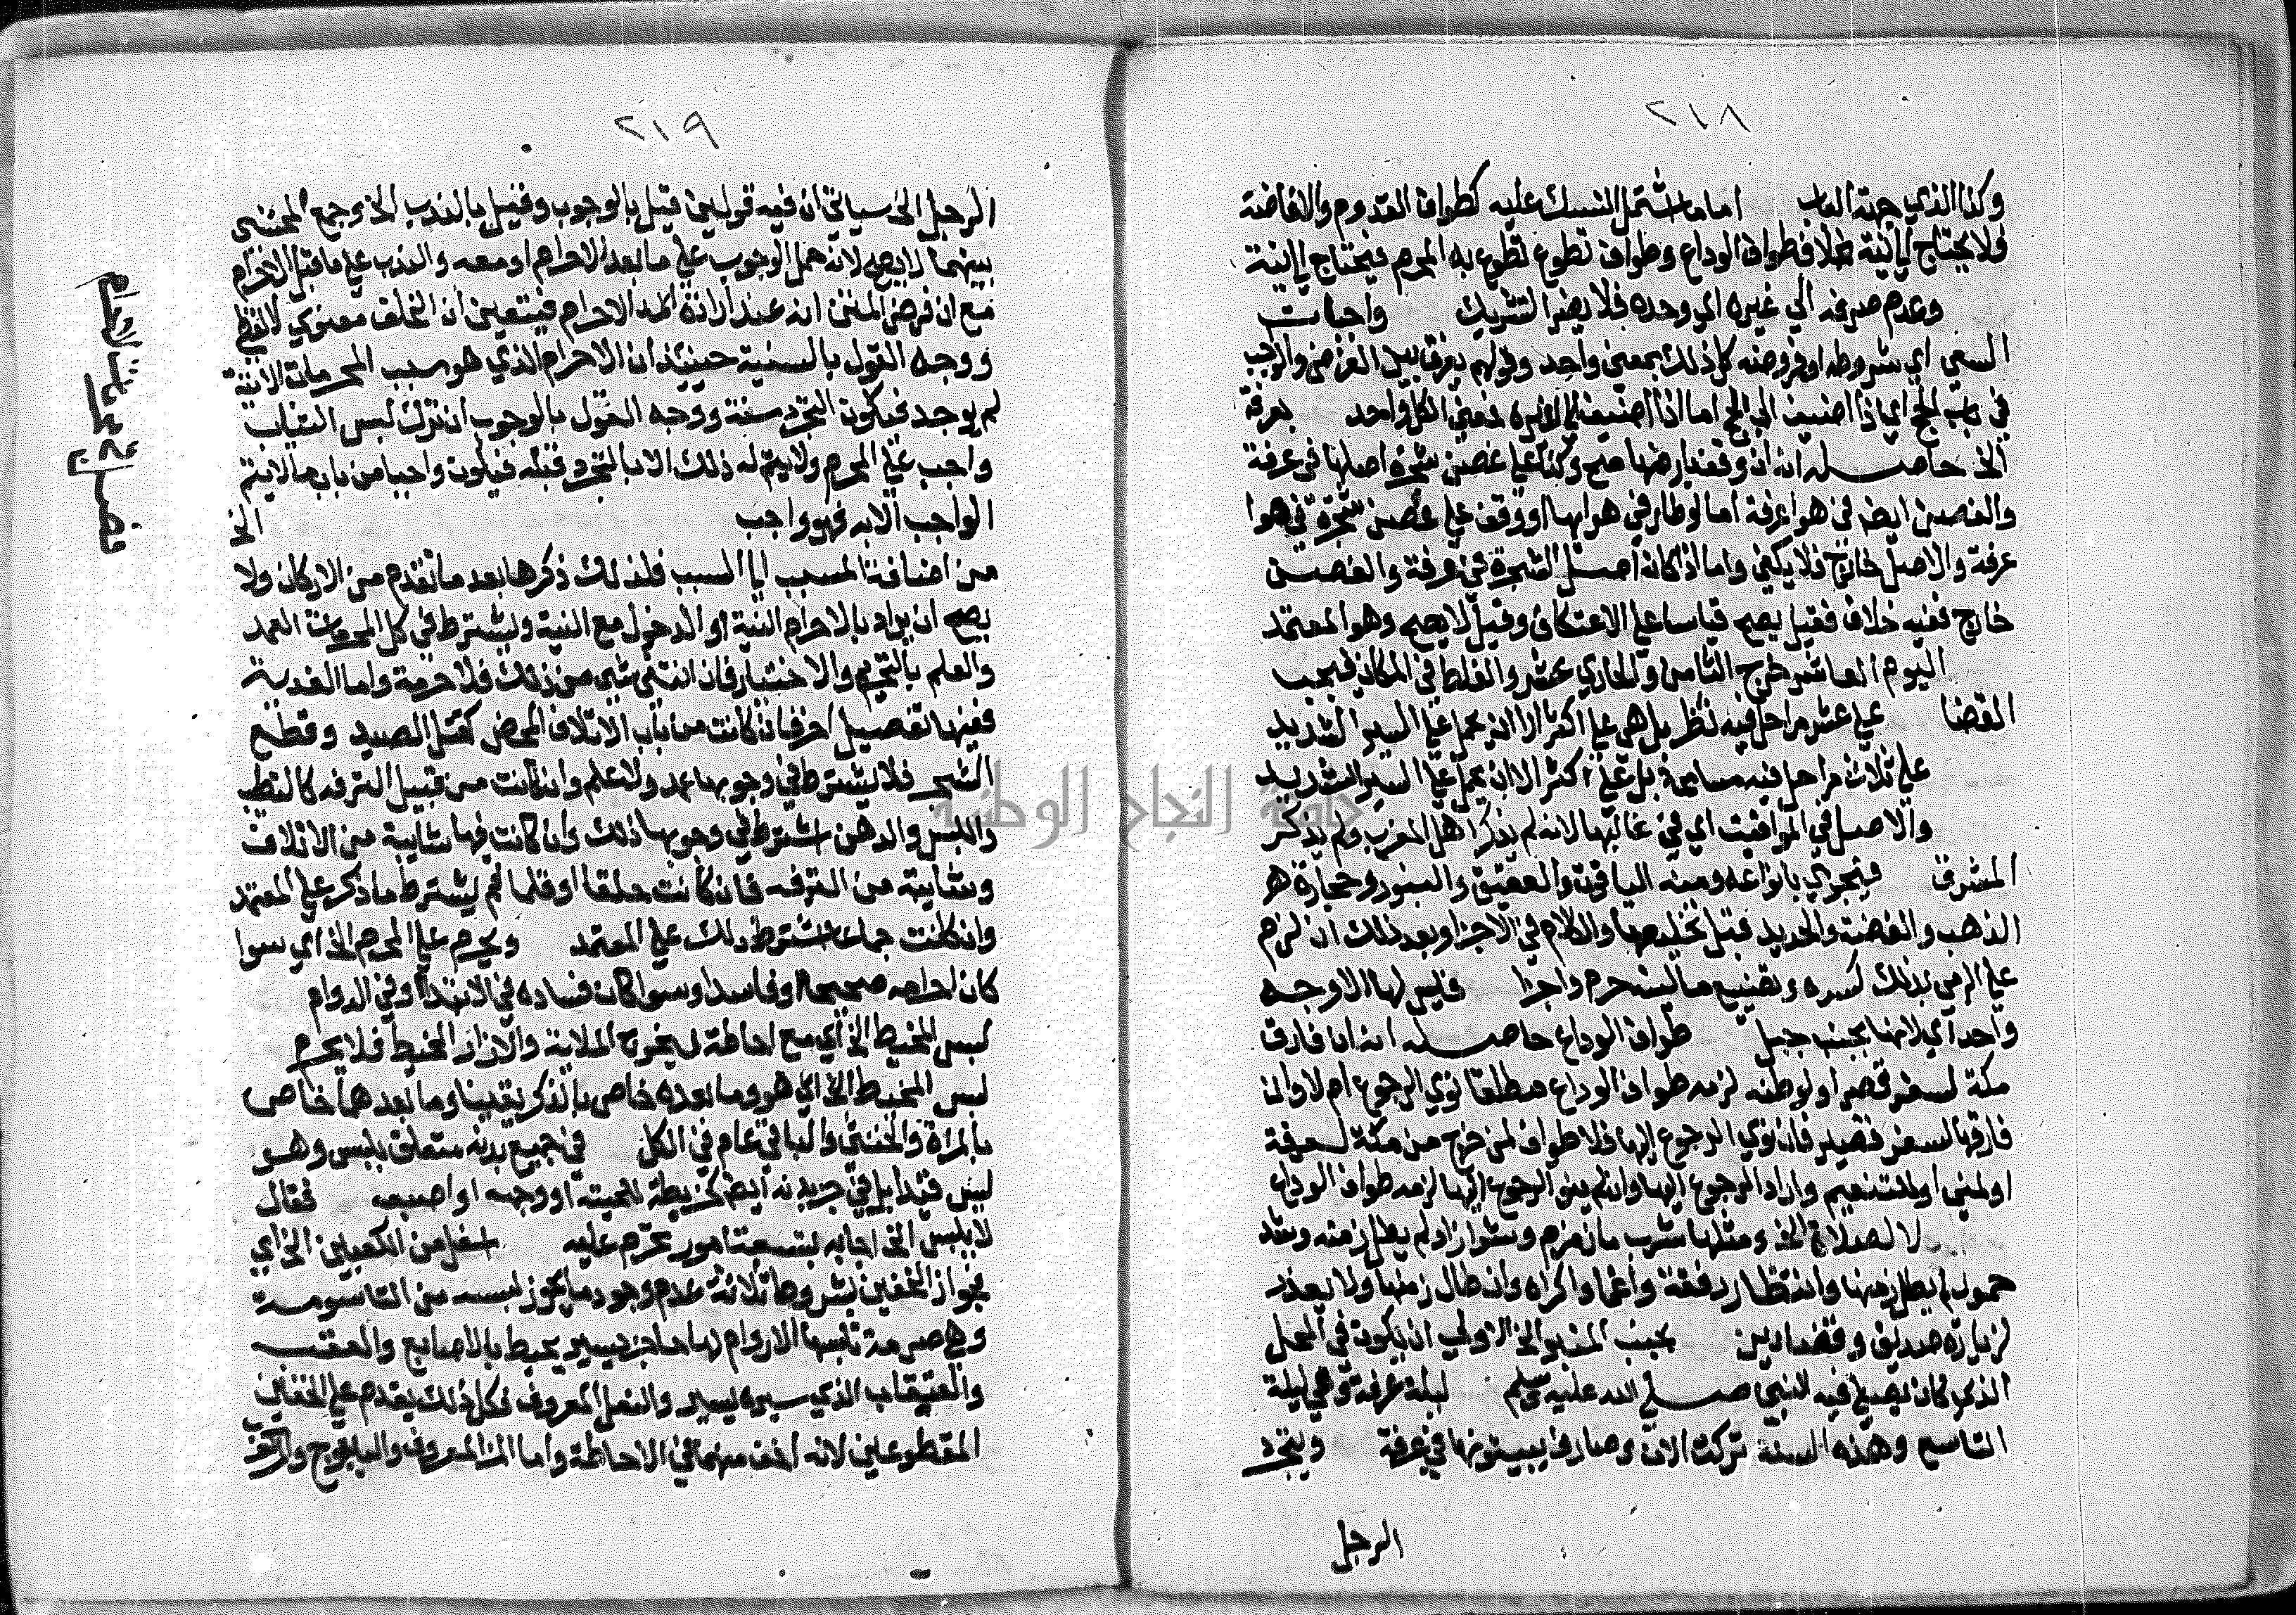 ٢١٨
وكذا الذي جهة الباب اما ما اشتمل النسك عليه كطواف القدوم والافاضة
فلا يحتاج الى نية بخلاف طواف الوداع وطواف تطوع تطوع به المحرم فيحتاج الى نية
وعدم صرفه الى غيره اي وحده فلا يضر التشريك واجبات
السعي اي شروطه او فروضه كل ذلك بمعنى واحد وقولهم يفرق بين الفرض والواجب
في باب الحج اي اذا اضيف الى الحج اما اذا اضيف الى غيره فمعنى الكل واحد بعرفة
الخ حاصله انه ان وقف بارضها صح وكذا على غصن شجرة اصلها في عرفة
والغصن ايضا في هواء عرفة اما لو طار في هوائها او وقف على غصن شجرة في هوا
عرفة والاصل خارج فلا يكفي واما اذا كان اصل الشجرة في عرفة والغصن
خارج ففيه خلاف فقيل يصح قياسا على الاعتكاف وقيل لا يصح وهو المعتمد
اليوم العاشر خرج الثامن والحادي عشر والغلط في المكان فيجب
القضا على عشر مراحل فيه نظر بل هي على اكثر الا ان يحمل على السير الشديد
على ثلاث مراحل فيه مسامحة بل على اكثر الا ان يحمل على السير الشديد
والاصل في المواقيت اي في غالبها لانه لم يذكر اهل المغرب ولم يذكر
المشرق فيجزي بانواعه ومنه الياقوت والعقيق والبلور وحجارة
الذهب والفضة والحديد قبل تخليصها والكلام في الاجزا وبعد ذلك ان لزم
على الرمي بذلك كسره وتضييع مالية حرم واجزا فليس لها الا وجه
واحد اي لانها بجنب جبل طواف الوداع حاصله انه اذا فارق
مكة لسفر قصر او لوطنه لزمه طواف الوداع مطلقا نوى الرجوع ام لا وان
فارقها لسفر قصير فان نوى الرجوع اليها فلا طواف لمن خرج من مكة لعرفة
او لمنى او للتنعيم واراد الرجوع اليها وان لم ينو الرجوع اليها لزمه طواف الوداع
لا لصلاة الخ ومثلها شرب ماء زمزم وشراء زاد لم يطل زمنه وشد
حمول لم يطل زمنها وانتظار رفقة واغما واكراه وان طال زمنها ولا يعذر
لزيارة صديق وقضا دين بجنب المنبر الخ الاولى ان يكون في المحل
الذي كان يصلي فيه النبي صلى الله عليه وسلم ليلة عرفة وهي ليلة
التاسع وهذه السنة تركت الان وصاروا يبيتونها في عرفة ويتجرد
الرجل
٢١٩
الرجل الخ سياتي ان فيه قولين قيل بالوجوب وقيل بالندب الخ وجمع المحشي
بينهما لا يصح لانه حمل الوجوب على ما بعد الاحرام او معه والندب على ما قبل الاحرام
مع ان فرض المتن انه عند ارادة الاحرام فيتعين ان الخلف معنوي لا لفظي
ووجه القول بالسنية حينئذ ان الاحرام الذي هو سبب المحرمات الاتية
لم يوجد فيكون التجرد سنة ووجه القول بالوجوب ان ترك لبس الثياب
واجب على المحرم ولا يتم له ذلك الا بالتجرد قبله فيكون واجبا من باب ما لا يتم
الواجب الا به فهو واجب الخ
فصل في محرمات الاحرام
من اضافة المسبب الى السبب فلذلك ذكرها بعد ما تقدم من الاركان ولا
يصح ان يراد بالاحرام النية او الدخول مع النية ويشترط في كل المحرمات العمد
والعلم بالتحريم والاختيار فان انتفى شي من ذلك فلا حرمة واما الفدية
ففيها تفصيل اخر فان كانت من باب الاتلاف المحض كقتل الصيد وقطع
الشجر فلا يشترط في وجوبها عمد ولا علم وان كانت من قبيل الترفه كالتطيب
واللبس والدهن اشترط في وجوبها ذلك وان كانت فيها شايبة من الاتلاف
وشايبة من الترفه فان كانت حلقا او قلما لم يشترط ما ذكر على المعتمد
وان كانت جماعا اشترط ذلك على المعتمد ويحرم على المحرم الخ اي سوا
كان احرامه صحيحا او فاسدا وسوا كان فساده في الابتدا او في الدوام
لبس المخيط الخ اي مع احاطة ليخرج الملاية والازار المخيط فلا يحرم
لبس المخيط الخ اي هو وما بعده خاص بالذكر يقينا وما بعدهما خاص
بالمراة والخنثى والباقي عام في الكل في جميع بدنه متعلق بلبس وهو
ليس قيدا بل في جزء بدنه ايضا كخريطة للحيته او وجهه او اصبعه فقال
لا يلبس الخ اجابه بتسعة امور تحرم عليه اسفل من الكعبين الخ اي
بجواز الخفين بشروط ثلاثة عدم وجود ما يجوز لبسه من التاسومة
وهي صرمة تلبسها الاروام لها حاجز يسير يحيط بالاصابع والعقب
والقبقاب الذي سيره يسير والنعل المعروف فكل ذلك يقدم على الخفين
المقطوعين لانه اخف منهما في الاحاطة واما المز المعروف والبابوج والخف